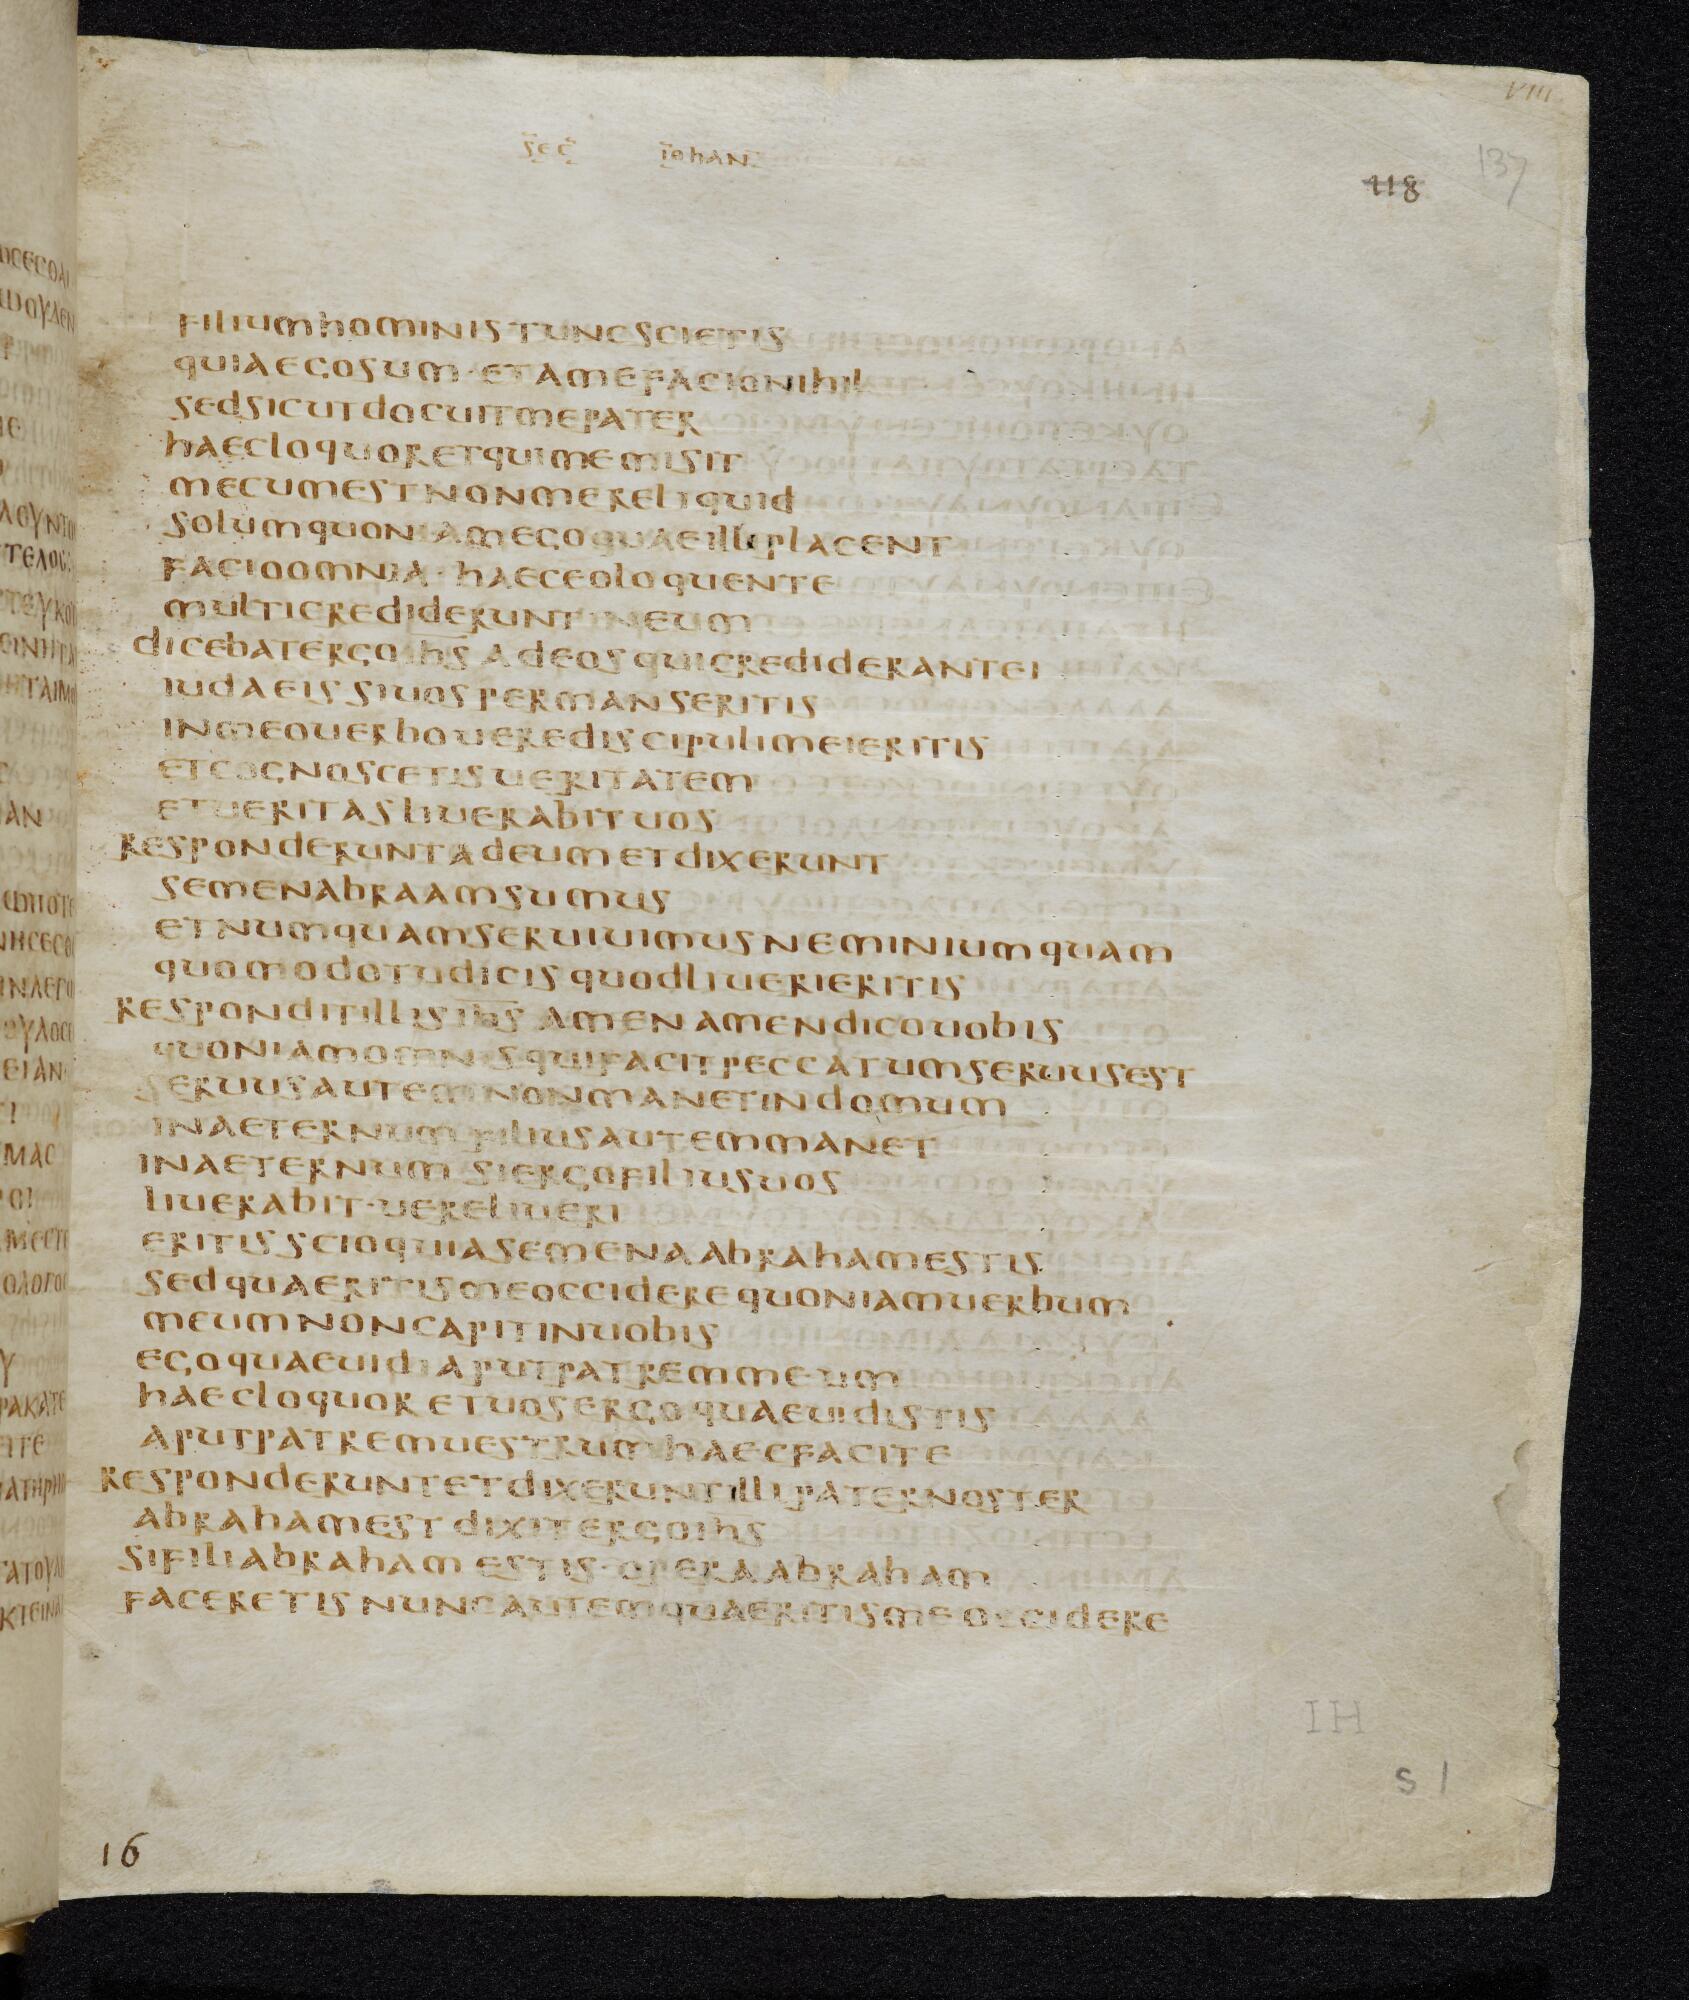 VIII
sec iohan
137
118
filiumhominis tuncscietis
quiaegosum · etamefacionihil
sedsicutdocuitmepater
haecloquoretquimemisit
mecumestnonmereliquid
solumquoniamegoquaeilliplacent
facioomnia · haeceoloquente
multicredideruntineum
dicebatergo ihs adeosquicrediderantei
iudaeis siuospermanseritis
inmeouerbo uerediscipulimeieritis
etcognoscetisueritatem
etueritasliuerabituos
responderuntadeumetdixerunt
semenabraamsumus
etnumquamseruiuimusneminiumquam
quomodotudicisquodliuerieritis
respondit illis ihs amen amendicouobis
quoniamomnisquifacitpeccatumseruusest
seruusautemnonmanetindomum
inaeternum filiusautemmanet
inaeternum siergofiliusuos
liuerabit · uereliueri
eritis scioquiasemenaabrahamestis
sedquaeritismeoccidere quoniamuerbum
meumnoncapitinuobis
egoquaeuidiaputpatremmeum
haecloquor etuosergoquaeuidistis
aputpatremuestrum haecfacite
responderuntetdixeruntilli pater noster
abrahamest dixitergoihs
sifiliabraham estis · operaabraham
faceretis nuncautemquaeritismeoccidere
IH
s 1
16